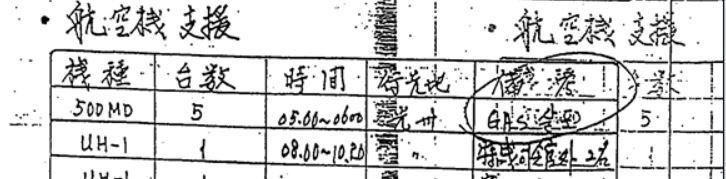 • 航空機 支援 • 航空機 支援
機種 台数 時間 行先地 備考
500MD 5 05.00~0600 光州 GAS 살포 5
UH-1 1 08.00~10.20 〃 2名
UH-1